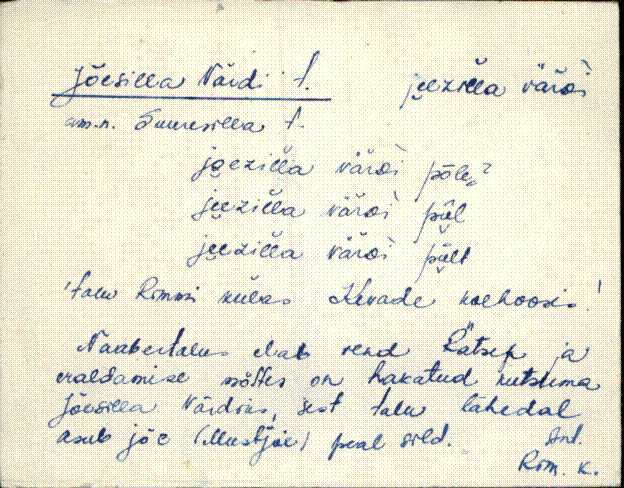 Jõesilla Värdi t. jeezilla värdi
am.n. Suuresilla t.
joezilla värdi põle?
jeezilla värdi pill
jeezilla värdi pilt
'talu Rimmi külas Kevade kolhoosis.'
Naabertalus elab vend Rätsep ja
eraldamise mõttes on hakatud kutsuma
Jõesilla Värdiks, sest talu lähedal
asub jõe (Mustjõe) peal sild. Ant.
Rõm. k.